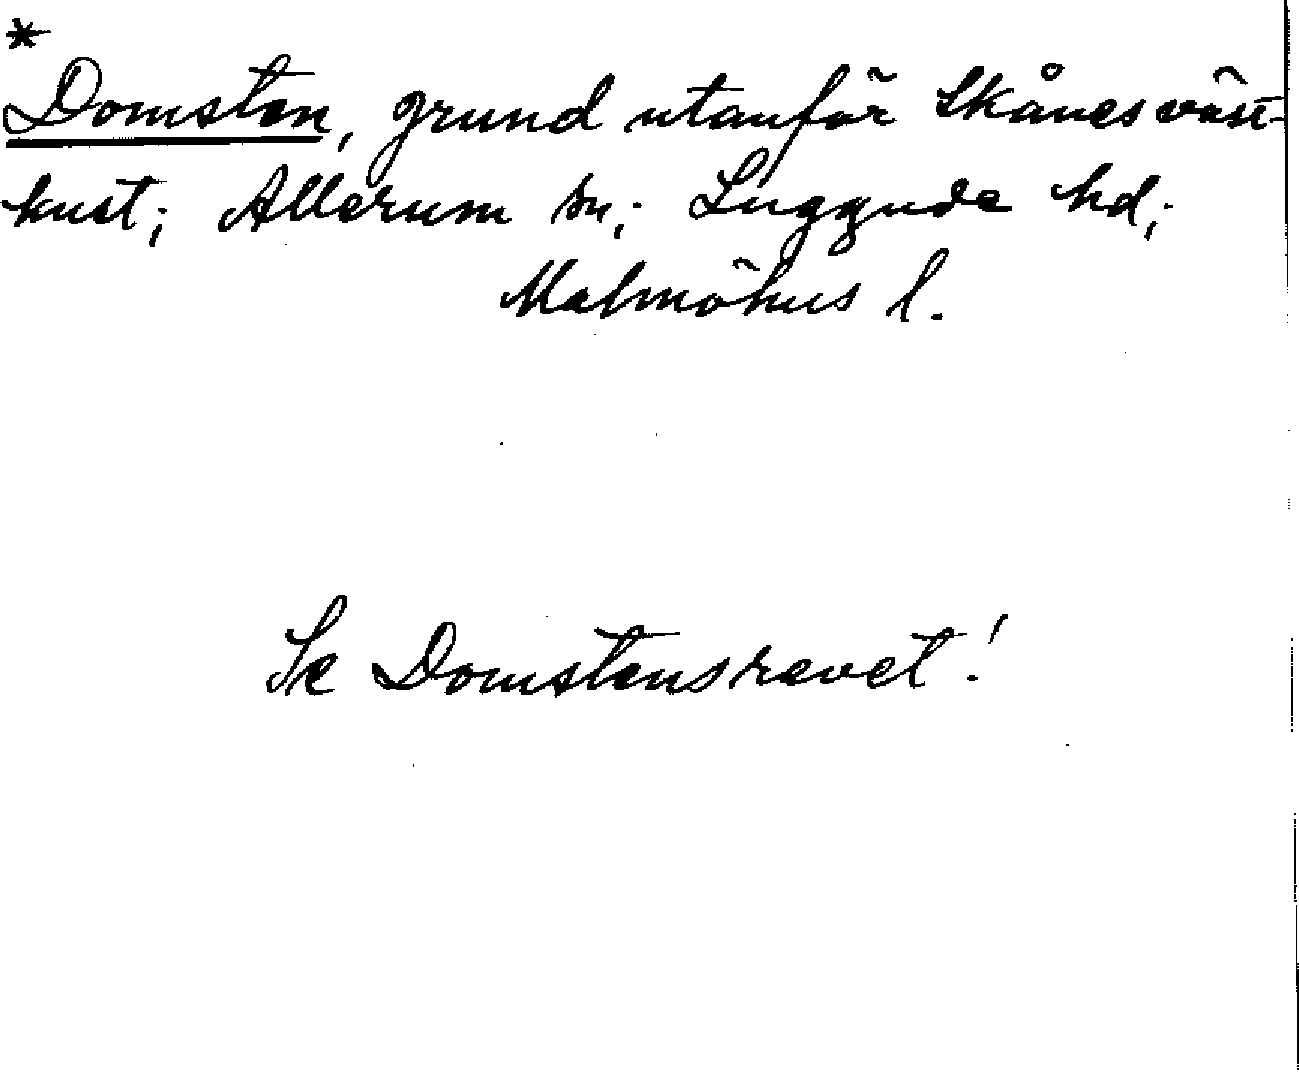 *
Domsten, grund utanför Skånes väst-
kust; Allerum sn; Luggude hd;
Malmöhus l.
Se Domstensrevet!